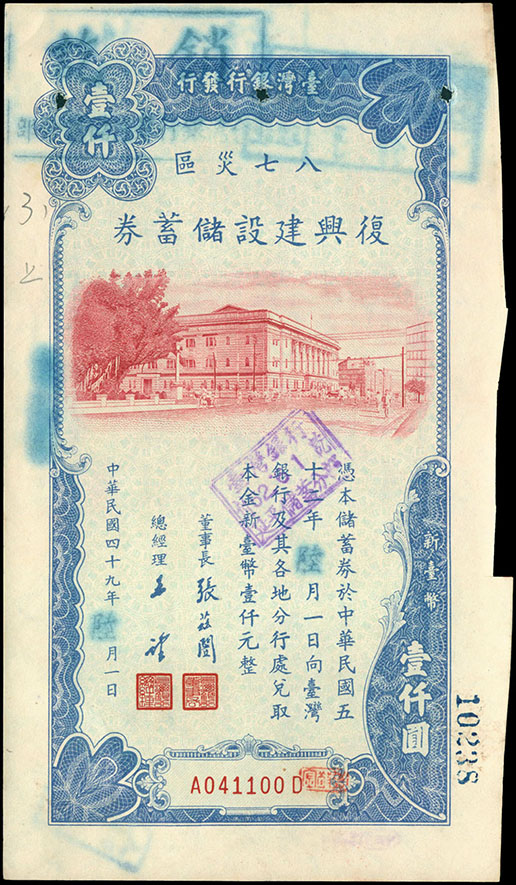 銷
壹仟
行發行銀灣臺
區災七八
券蓄儲設建興復
憑本儲蓄券於中華民國五
十二年陸月一日向臺灣
銀行及其各地分行處兌取
本金新臺幣壹仟元整
董事長
總經理
中華民國四十九年陸月一日
新臺幣
壹仟圓
10238
A041100D